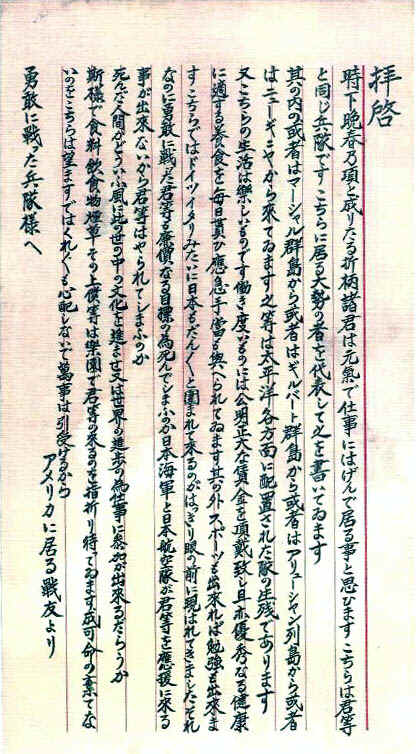 拝啓
時下晩春乃項と成りたる折柄諸君は元氣で仕事にはげんで居る事と思ひますこちらは君等
と同じ兵隊ですこちらに居る大勢の者を代表して之を書いてゐます
其の内の或者はマーシャル群島から或者はギルバート群島から或者はアリューシャン列島から或者
はニューギニヤから來てゐます之等は太平洋各方面に配置された隊の生残であります
又こちらの生活は樂しいものです働き度いものには公明正大な賃金を頂戴致し且亦優秀なる健康
に適する養食を毎日貰ひ應急手當も與へられてゐます其の外スポーツも出來れば勉強も出來ま
すこちらではドイツイタリみたいに日本もだんだんと圍まれて來るのがはっきり眼の前に現はれてきましたそれ
なのに勇敢に戰った君等も廉價なる目標の為死んでしまふのか日本海軍と日本航空隊が君等を應援に來る
事が出來ないから君等はやられてしまふのか
死んだ人間がどういふ風に此の世の中の文化を進ませ又は世界の進歩の為仕事に參加が出來るだらうか
斯様で食料飲食物煙草その上慣等は樂園で君等の來るのを指折り待てゐます成可命の棄てな
いのをこちらは望ますではくれぐれも心配しないで萬事は引受けるから
アメリカに居る戰友より
勇敢に戰った兵隊様へ